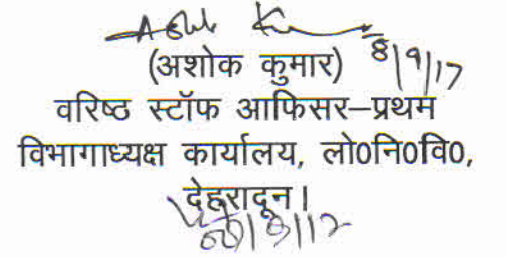 8/9/17
(अशोक कुमार)
वरिष्ठ स्टॉफ आफिसर–प्रथम
विभागाध्यक्ष कार्यालय, लो0नि0वि0,
देहरादून।